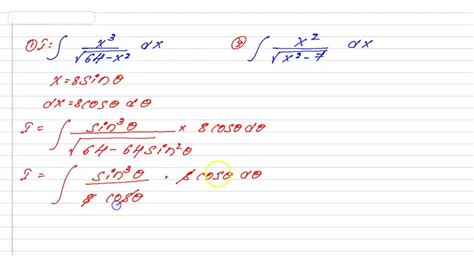 ① I = ∫ x³/√(64-x²) dx ② ∫ x²/√(x²-7) dx
x = 8sinθ
dx = 8cosθ dθ
I = ∫ sin³θ/√(64-64sin²θ) × 8cosθdθ
I = ∫ sin³θ/(8 cosθ) · 8cosθ dθ